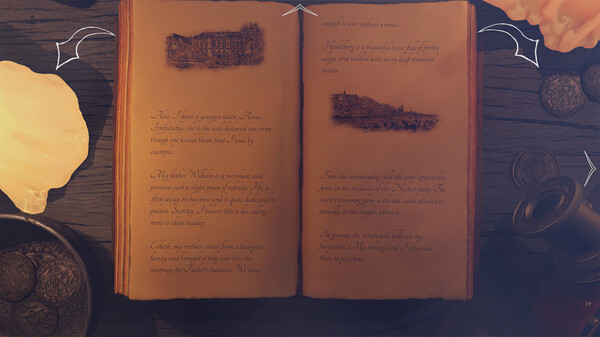 Also, I have a younger sister, Anna.
Irrefutably, she is the well-behaved one, even
though one would think that I lead by
example.
My father Wilhelm is a merchant and
possesses just a slight grain of nobility. He is
often away on business and is quite dedicated to
politics. Secretly, I believe this is his calling
more so than trading.
my mother, comes from a bourgeois
family and brought a tidy sum into the
marriage for Father's business. We have
enough to live without worries.
Heidelberg is a beautiful town, full of pretty
alleys and riddled with many half-timbered
houses.
From the surrounding hills the roofs appear like
gems on the necklace of the Neckar river. The
town's crowning glory is the old castle which sits
proudly in the heights above it.
In general, the woods and hills are my
favourites. My siblings and I often hike
there to pass time.